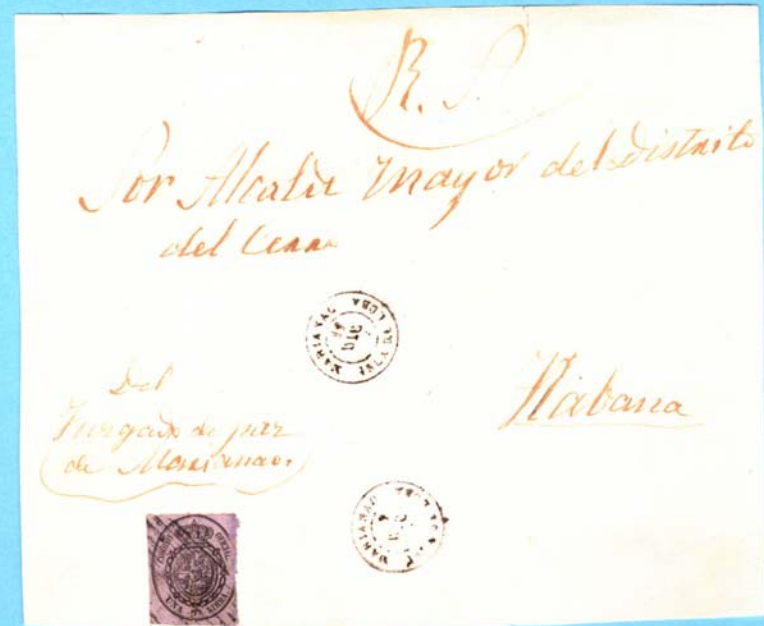 R. S.
Sor Alcalde Mayor del Distrito
del Cerro
MARIANAO ISLA DE CUBA
DIC
Del
Juzgado de paz
de Marianao.
Habana
MARIANAO
CORREO OFICIAL
UNA ONZA